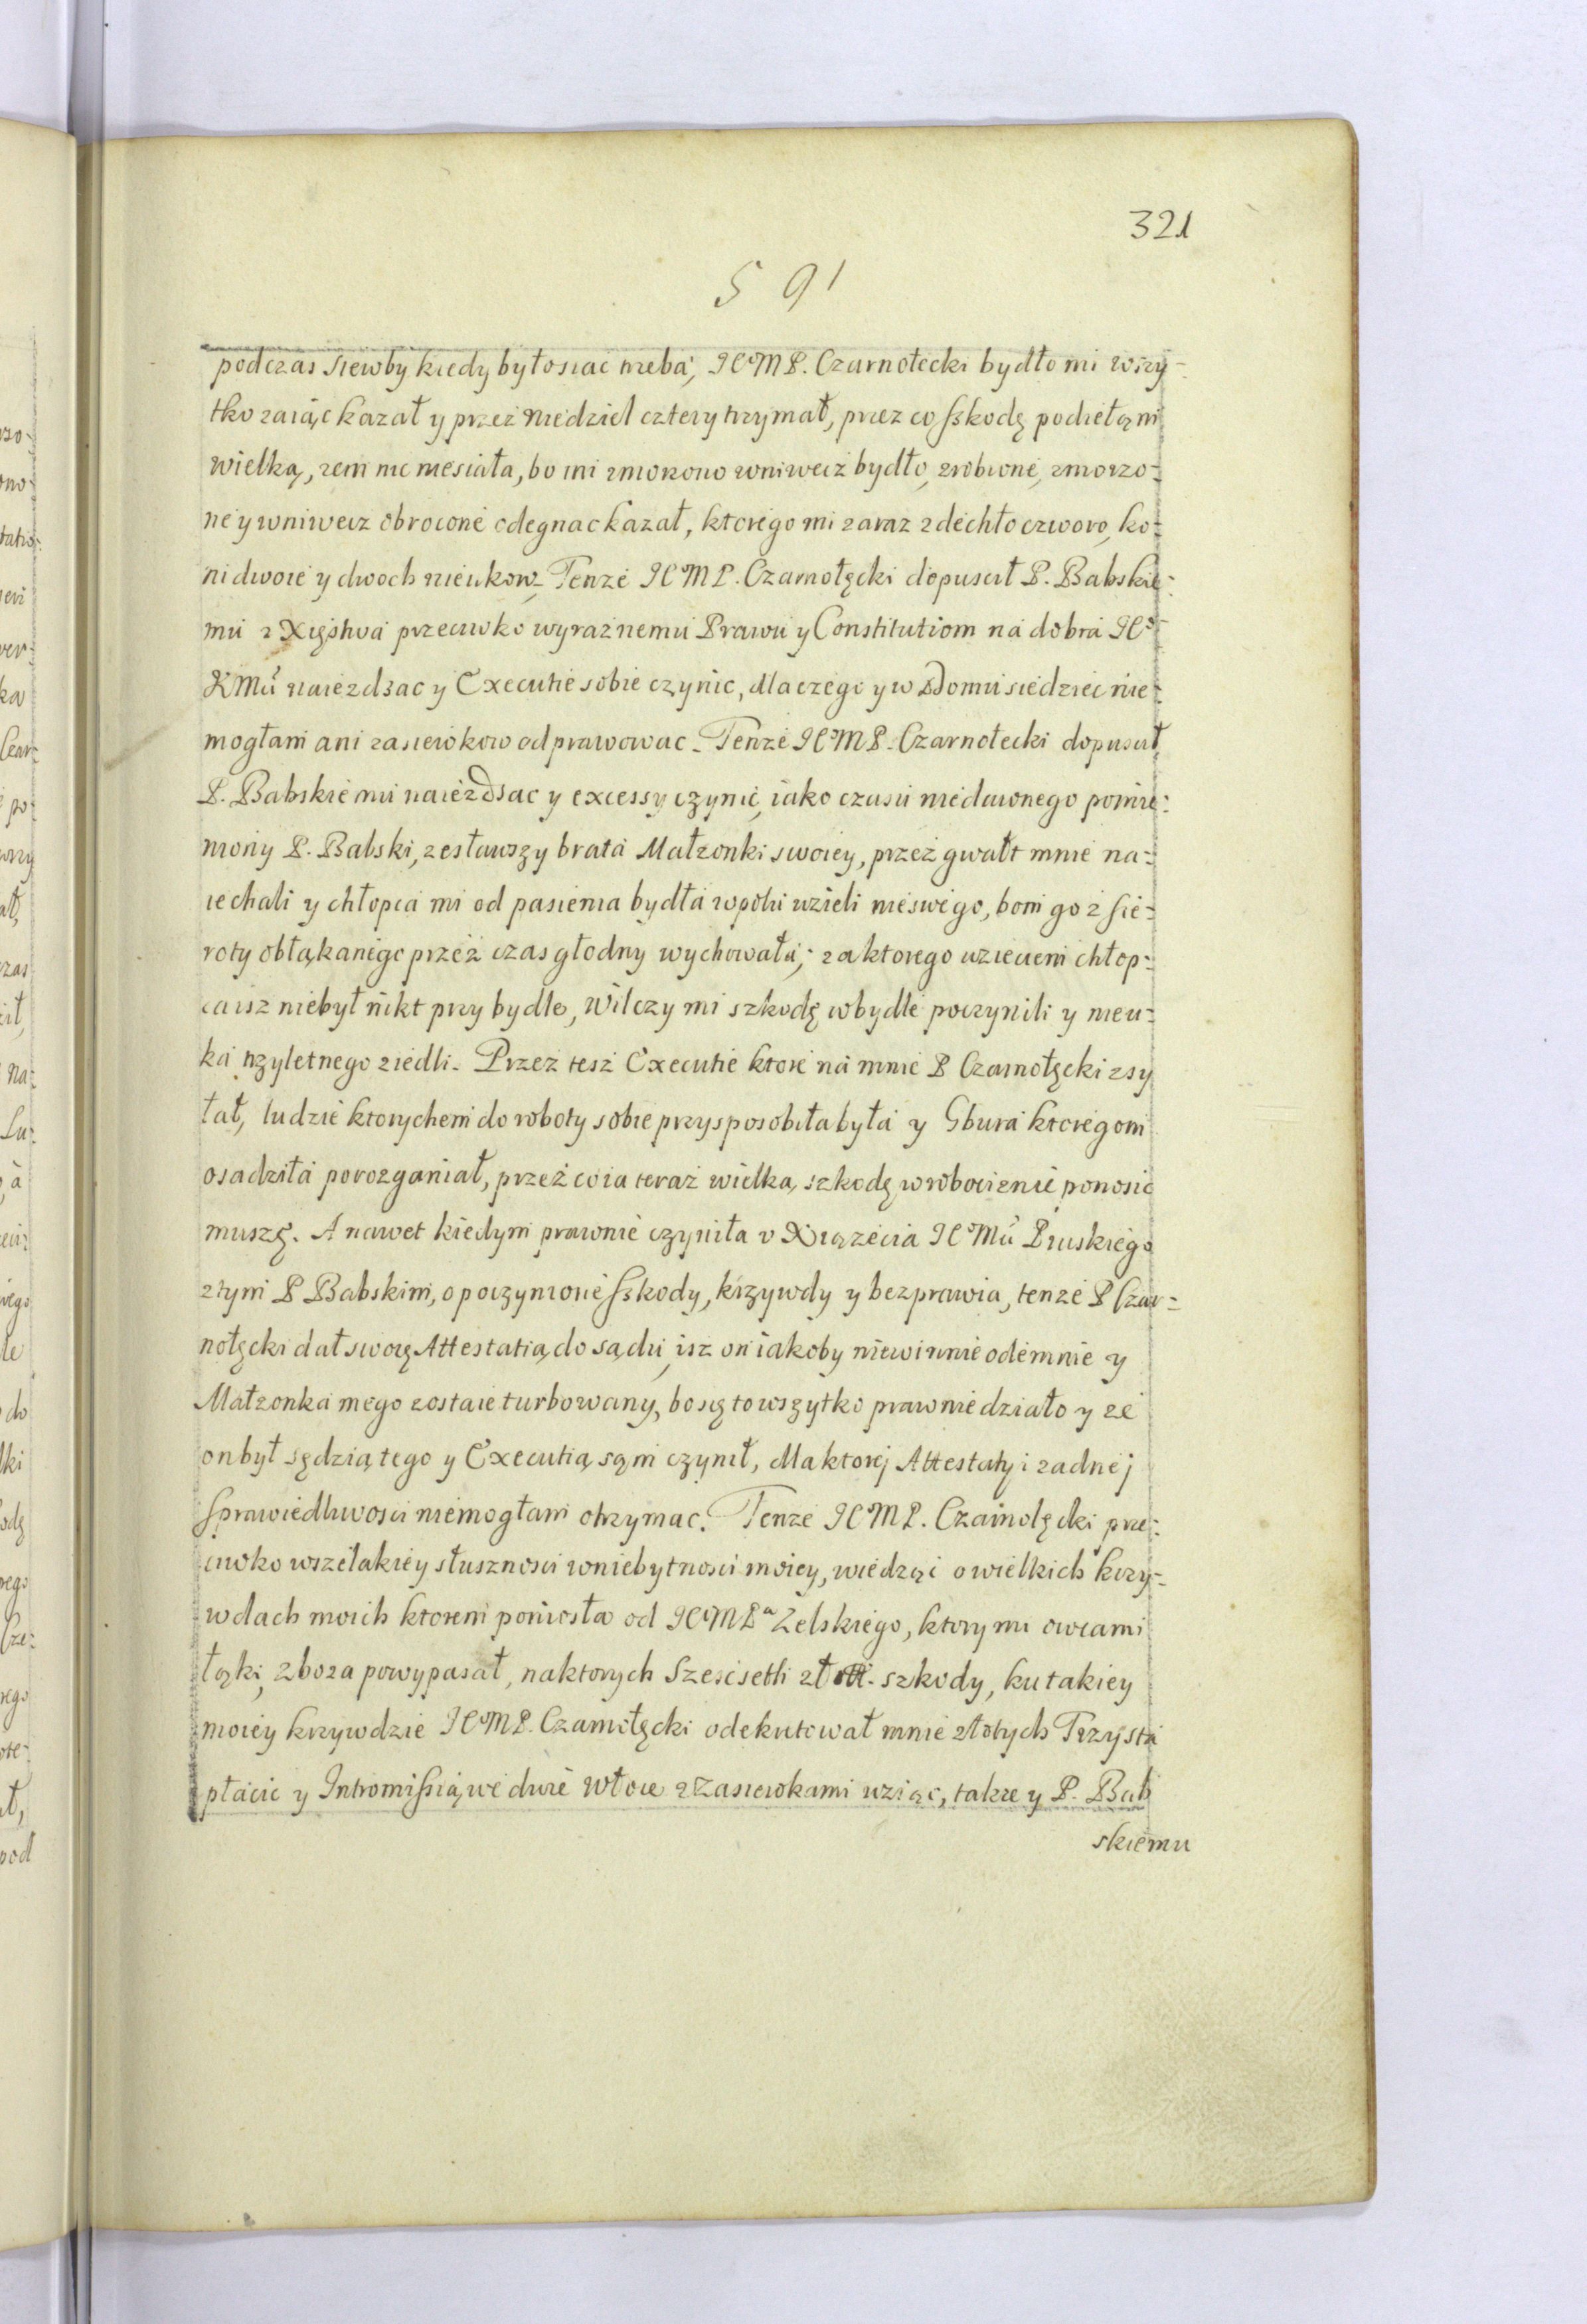 321
591
podczas siewby kiedy było siac trzeba, JCMP. Czarnołecki bydło mi wszy-
tko zaiąc kazał y przez niedziel cztery trzymał, przez co szkodę podiełąm
wielką, zem nic niesiała, bo mi zmorono wniwecz bydło, zrobione, zmorzo-
ne y wniwecz obrocone odegnac kazał, ktorego mi zaraz zdechło czworo, ko-
ni dwoie y dwoch nieukow. Tenze JCMP. Czarnołęcki dopuscił P. Babskie-
mu z Xięstwa przeciwko wyraznemu Prawu y Constitutiom na dobra JCo
KMci naiezdzac y Executie sobie czynic, dla czego y w Domu siedziec nie-
mogłam ani zasiewkow odprawowac. Tenze JCMP. Czarnołecki dopuscił
P. Babskiemu naiezdsac y excessy czynic, iako czasu niedawnego pomie-
niony P. Babski, zesławszy brata Małzonki swoiey, przez gwałt mnie na-
iechali y chłopca mi od pasienia bydła wpolu wzieli nieswego, bom go z sie-
roty obłąkanego przez czas głodny wychowała; za ktorego wzieciem chłop-
ca isz niebył nikt przy bydle, Wilczy mi szkodę wbydle poczynili y nieu-
ka trzyletnego ziedli. Przez tesz Executie ktore na mnie P Czarnołęcki zsy
łał, ludzie ktorychem do roboty sobie przysposobiła była y Gbura ktoregom
osadziła porozganiał, przez co ia teraz wielką szkodę w robociznie ponosic
muszę. A nawet kiedym prawnie czyniła v Xiązecia JCMci Pruskiego
z tym P Babskim, o poczynione szkody, krzywdy y bezprawia, tenze P Czar-
nołęcki dał swoię Attestatią do sądu, isz on iakoby niewinnie odemnie y
Małzonka mego zostaie turbowany, bo się to wszytko prawnie działo y ze
on był sędzią tego y Executią sąm czynił, dla ktorej Attestatyi zadnej
sprawiedliwosci niemogłam otrzymac. Tenze JCMP. Czarnołęcki prze-
ciwko wszelakiey słusznosci wniebytnosci moiey, wiedząc o wielkich krzy-
wdach moich ktorem poniosła od JCMPa Zelskiego, ktory mi owcami
łąki, zboza powypasał, naktorych Szescsetli zł. szkody, ku takiey
moiey krzywdzie JCMP. Czarnołęcki odekutował mnie złotych Trzysta
płacic y Intromissią we dwie Włoce z Zasiewkami wziąc, takze y P. Bab
skiemu